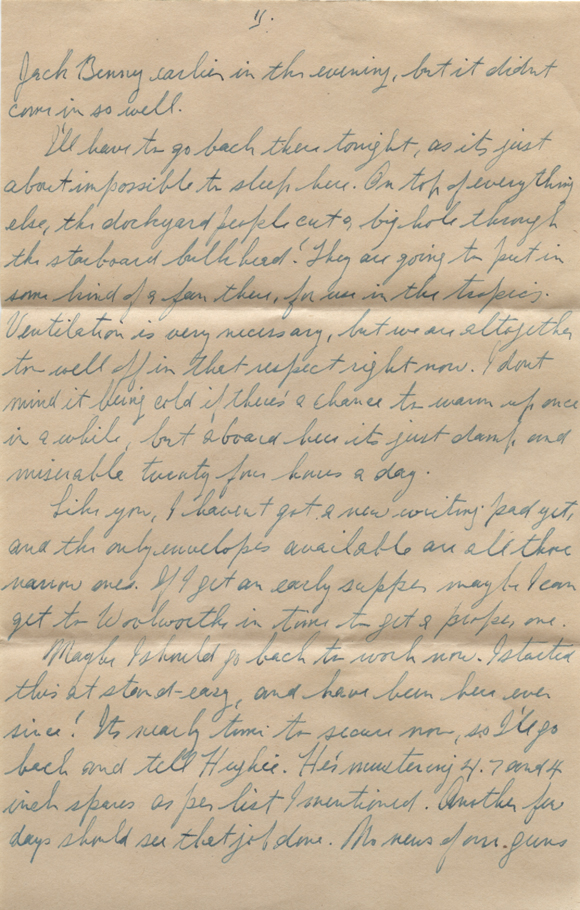 5.
Jack Benny earlier in the evening, but it didnt
come in so well.
I'll have to go back there tonight, as its just
about impossible to sleep here. On top of everything
else, the dockyard people cut a big hole through
the starboard bulkhead! They are going to put in
some kind of a fan there, for use in the tropics.
Ventilation is very necessary, but we are altogether
too well off in that respect right now. I dont
mind it being cold if there's a chance to warm up once
in a while, but aboard here its just damp and
miserable twenty four hours a day.
Like you, I haven't got a new writing pad yet,
and the only envelopes available are all those
narrow ones. If I get an early supper maybe I can
get to Woolworths in time to get a proper one.
Maybe I should go back to work now. I started
this at stand-easy, and have been here ever
since! Its nearly time to secure now, so I'll go
back and tell Hughie. He's mustering 4.7 and 4
inch spares as per list I mentioned. Another few
days should see that job done. No news of our guns